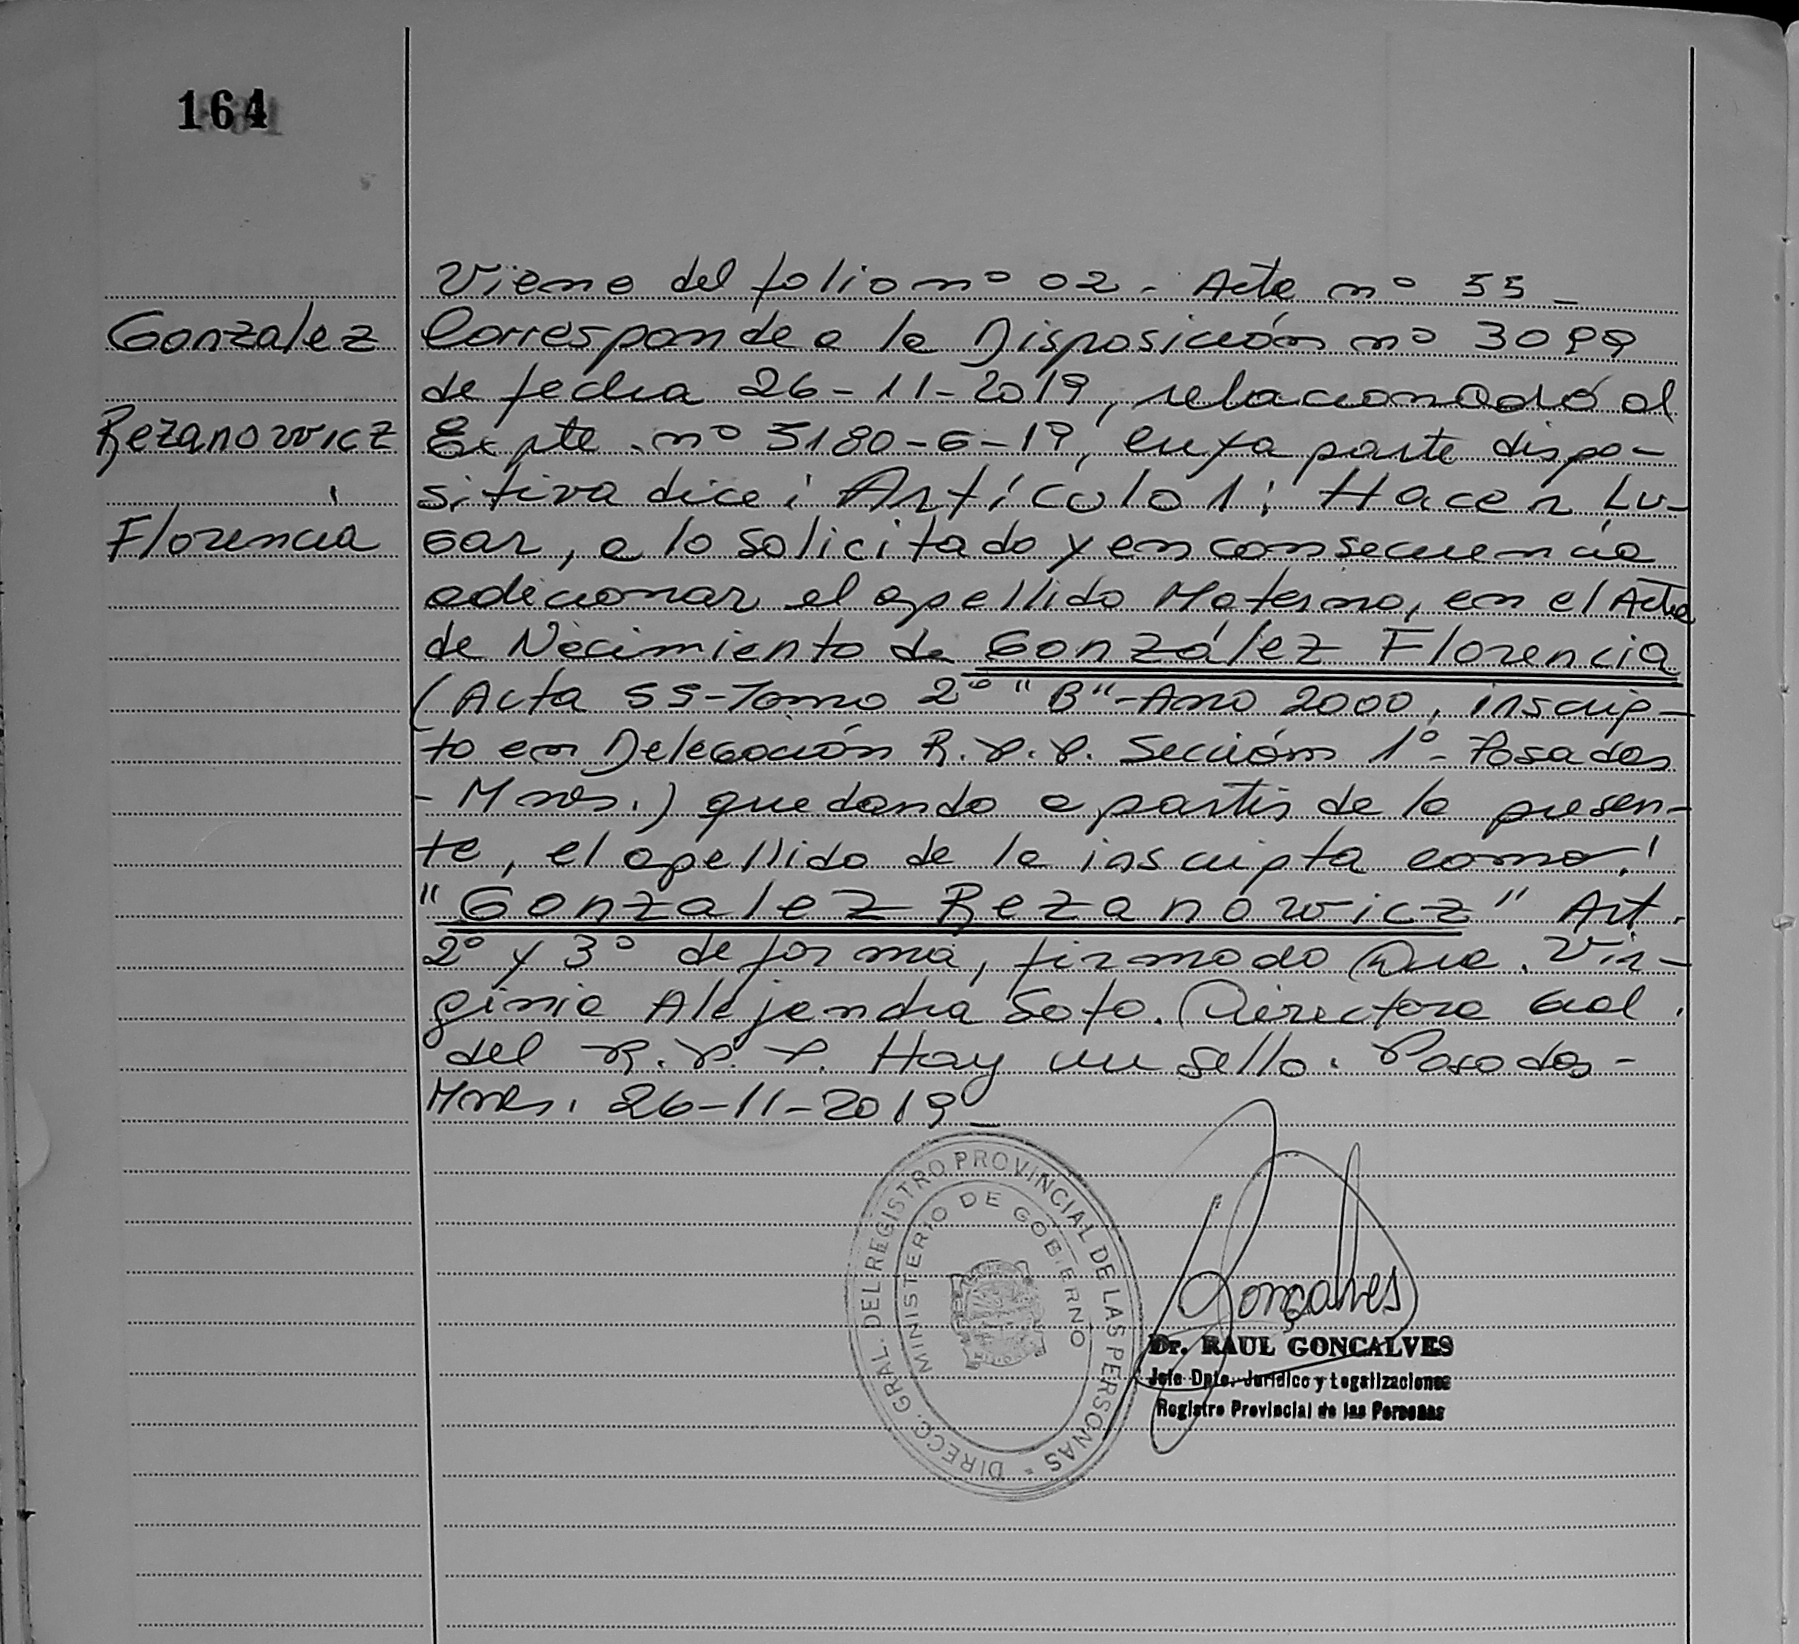 164
Gonzalez
Rezanowicz
Florencia
Viene del folio nº 02 - Acta nº 55 -
Corresponde a la Disposición nº 3099
de fecha 26-11-2019, relacionado al
Expte. nº 5180-G-19, cuya parte dispo-
sitiva dice: Artículo 1: Hacer Lu-
gar, a lo solicitado y en consecuencia
adicionar el apellido Materno, en el Acta
de Nacimiento de González Florencia
(Acta 55-Tomo 2º "B"-Año 2000, inscrip-
to en Delegación R.P.P. Sección 1º- Posadas
- Mnes.) quedando a partir de la presen-
te, el apellido de la inscripta como:
"Gonzalez Rezanowicz" Art.
2º y 3º de forma, firmado Dra. Vir-
ginia Alejandra Soto. Directora Gral.
del R.P.P. Hay un sello. Posadas -
Mnes. 26-11-2019_
DIRECC. GRAL. DEL REGISTRO PROVINCIAL DE LAS PERSONAS -
MINISTERIO DE GOBIERNO
Gonçalves
Dr. RAUL GONCALVES
Jefe Dpto. Jurídico y Legalizaciones
Registro Provincial de las Personas